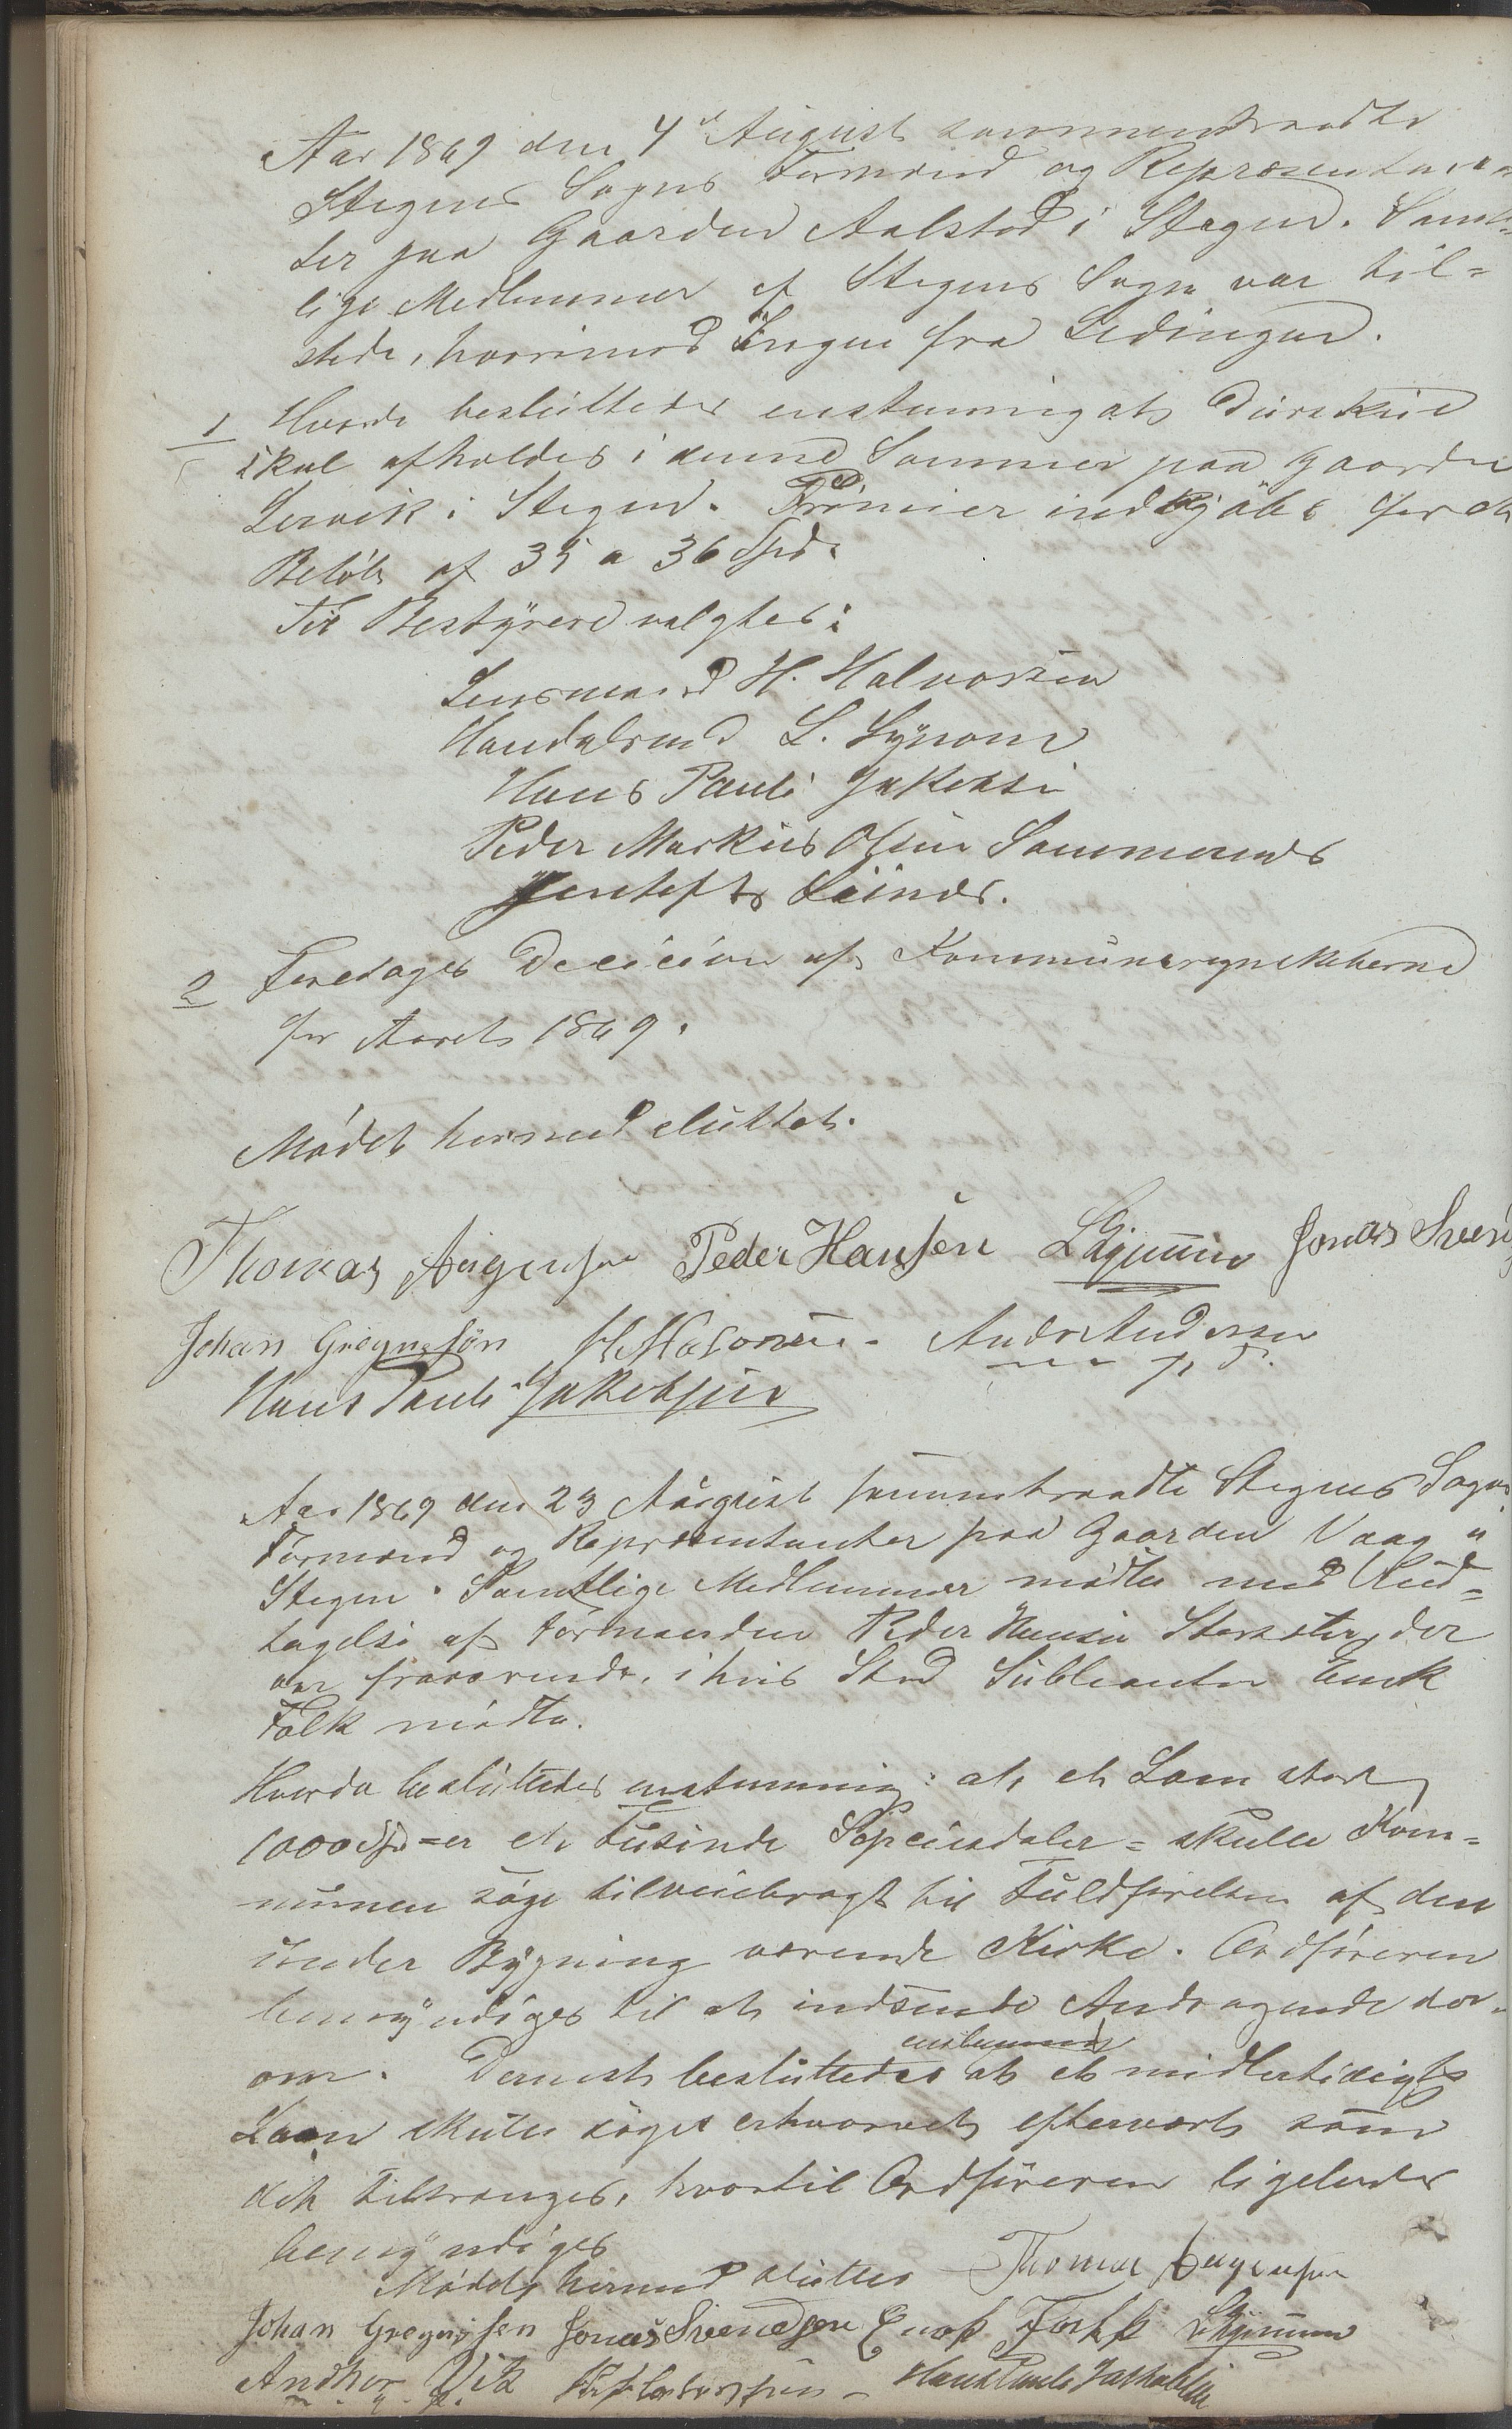 Aar 1869 den 4de August sammentraadte
Stegens Sogns Formænd og Repræsentan
ter paa Gaarden Aalstad i Stegen. Samt=
lige Medlemmer af Stegens Sogn var til=
stede, hvorimod Ingen fra Ledingen.
1 Hvorda besluttedes enstemmig at Dürskue
skal afholdes i denne Sommer paa Gaarden
Lervik i Stegen. Præmier indkjøbes for et
Beløb af 35 a 36 Spd.
Til Bestyrere valgtes:
Lensmand H. Halvorsen
Handelsmd L.
Hans Pauli Jakobs
Peder Markus Olsen
2 Foretoges Decision af Kommuneregnskberne
for Aaret 1869.
Mødet hermed sluttet.
Thomas Peder Hansen Jonas Svend
Johan Gregusøn H Halvorsen Andr Andersen
Hans Pauli Jakobsen
Aar 1869 den 23 August sammentraadte Stegens Sogns
Formænd og Repræsentanter paa Gaarden Vaag i
Stegen. Samtlige Medlemmer mødte med Und=
tagelse af Formanden Peder Hansen der
var fraværende, i hvis Sted Supleanten Enok
Falk mødte.
Hvorda besluttedes enstemmig: at et Laan stort
1000 Spd = er et Tusinde Speciesdaler = skulle Kom=
munen søge tilveiebragt til Fuldførelsen af den
under Bygning værende Kirke. Ordføreren
bemyndiges til at indsende Andragende der=
om. Dernest besluttedes enstemmig at et midlertidigt
Laan skulle søges erhvervet efterverts som
det tiltrænges, hvortil Ordføreren ligeledes
bemyndiges
Mødet hermed sluttes Thomas
Johan Gregusen Jonas Svendsen Enok Falk
Andhor Vik Hans Pauli Jakobsen